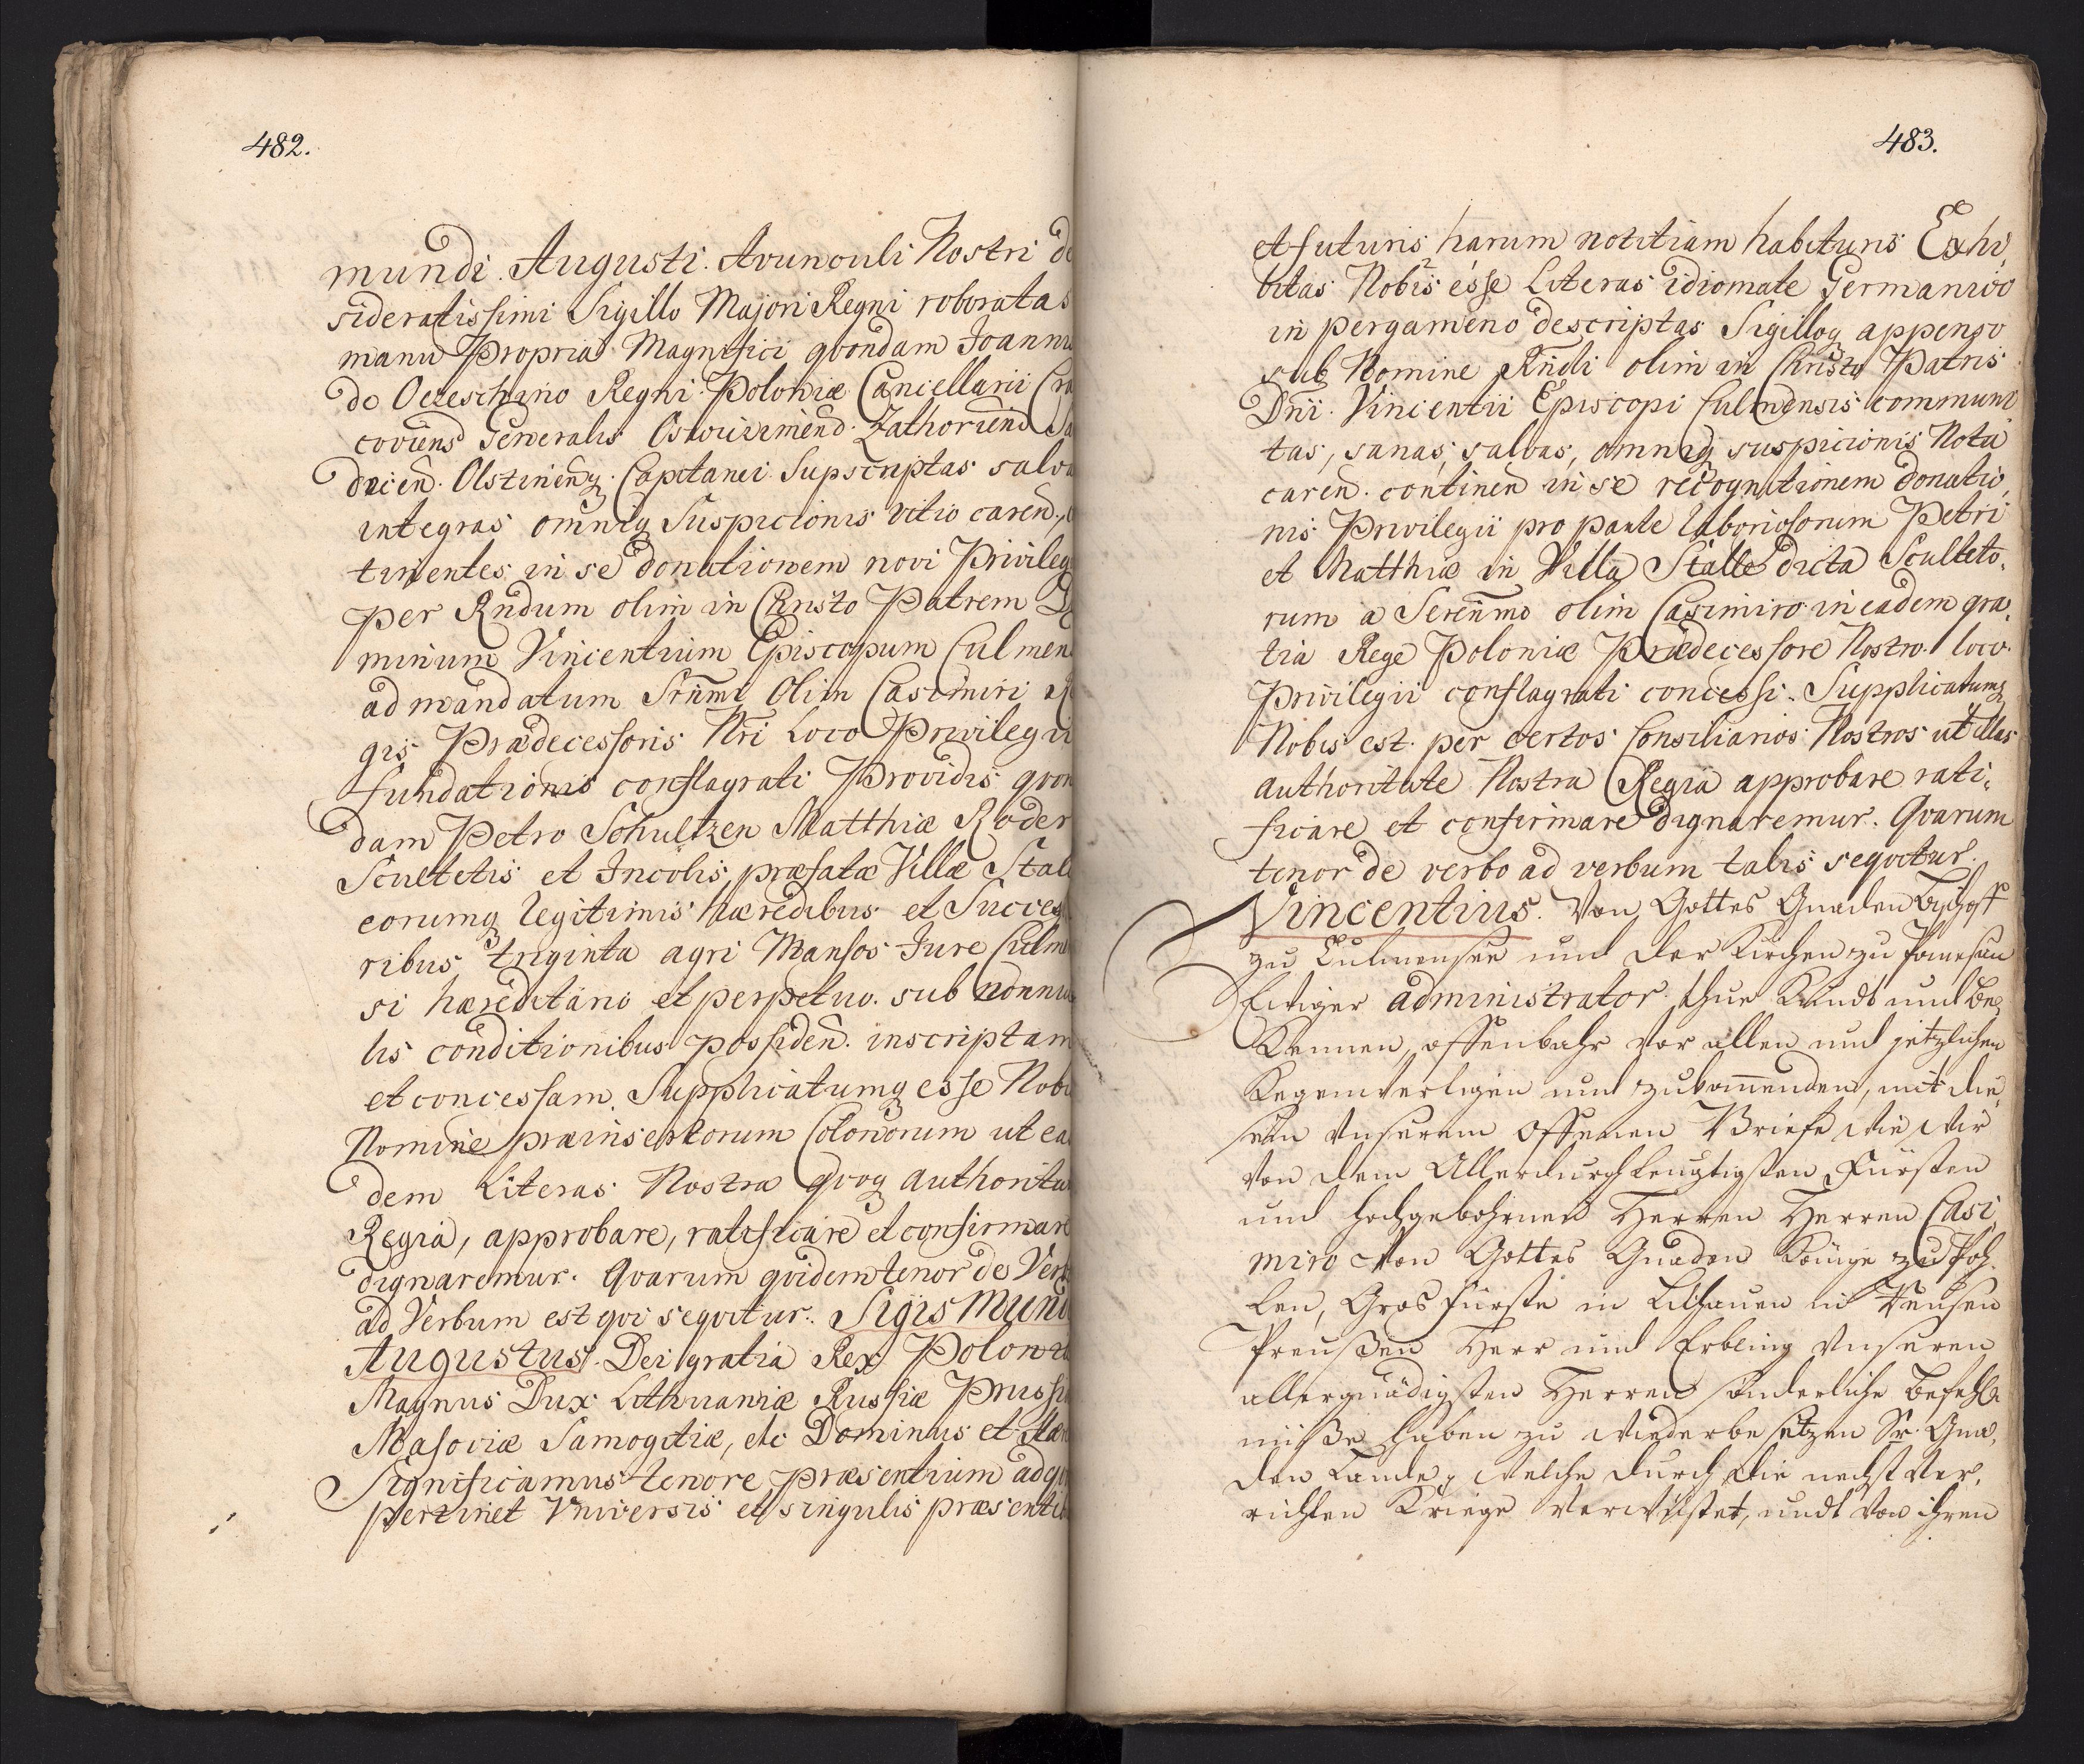 482.
mundi. Augusti. Avunculi Nostri de
sideratissimi Sigillo Majori Regni roboratas
manu Propria Magnifici qvondam Joannis
de Ocieschino Regni Poloniæ Cancellarii Cra
coviens Generalis Oswiecimens Zathoriens Sa
decen. Olstinenq. Capitanei Supscriptas salva
integras omniq Suspicionis vitio caren.,
tinentes in se donationem novi Privileg
per Rndum olim in Christo Patrem D
minum Vincentium Episcopum Culmen
ad mandatum Srnmi Olim Casimiri R
gis Prædecessoris Nri Loco Privilegii
fundationis conflagrati Providis qvon
dam Petro Schultzen Matthiæ Roder
Scultetis et Incolis præfatæ Villæ Stal
eorumq legitimis hæredibus et Succes
ribus triginta agri Mansos Jure Culm
si hæreditario et perpetuo. sub nonnu
lis conditionibus possiden. inscriptam
et concessam. Supplicatumq esse Nobi
Nomine præinsertorum Colonorum ut ea
dem Literas Nostra qvoq authorita
Regia, approbare, ratificare et confirmare
dignaremur. Qvarum qvidem tenor de Verb
ad Verbum est qvi seqvitur. Sigismund
Augustus. Dei gratia Rex Poloniæ
Magnus Dux Lithuaniæ Russiæ Prussiæ
Masoviæ Samogitiæ, etc Dominus et Hær
Significamus tenore præsentium ad qvo
pertinet Vniversis et singulis præsenti
483.
et futuris harum notitiam habituris Exhi,
bitas Nobis esse Literas idiomate Germanico
in pergameno descriptas Sigilloq appenso
sub Nomine Rndi olim in Christo Patris
Dni. Vincentii Episcopi Culmensis communi
tas, sanas, salvas, omniq suspicionis Nota
caren. continen in se recognitionem donatio,
nis Privilegii pro parte laboriosorum Petri
et Matthiæ in Villa Stalle dicta Sculteto,
rum a Serenmo olim Casimiro in eadem gra,
tia Rege Poloniæ Prædecessore Nostro. loco.
Privilegii conflagrati concessi. Supplicatumq
Nobis est. per certos Consiliarios Nostros ut illas
authoritate Nostra Regia approbare rati,
ficare et confirmare dignaremur. Qvarum
tenor de verbo ad verbum talis seqvitur.
Vincentius. Von Gottes Gnaden Bischoff
zu Culmensee und der Kirchen zu Pomesan
Ewiger administrator thue Kundt und be,
Kennen offenbahr vor allen und jetzlichen
Kegenwertigen und zukommenden, mit die,
sem Unserem offenen Briefe wie wir
von dem Allerdurchleuchtigsten Fürsten
und hochgebohrnen Herren Herren Casi
miro von Gottes Gnaden Könige zu Poh,
len, Gros fürste in Litthauen in Reusen
Preußen Herr und Erbling Unseren
allergnädigsten Herren sonderliche befehl
niße haben zu wiederbesetzen Sr. Gna,
den Lande, welche durch die nechst ver,
richten Kriege verwüstet, undt von ihren